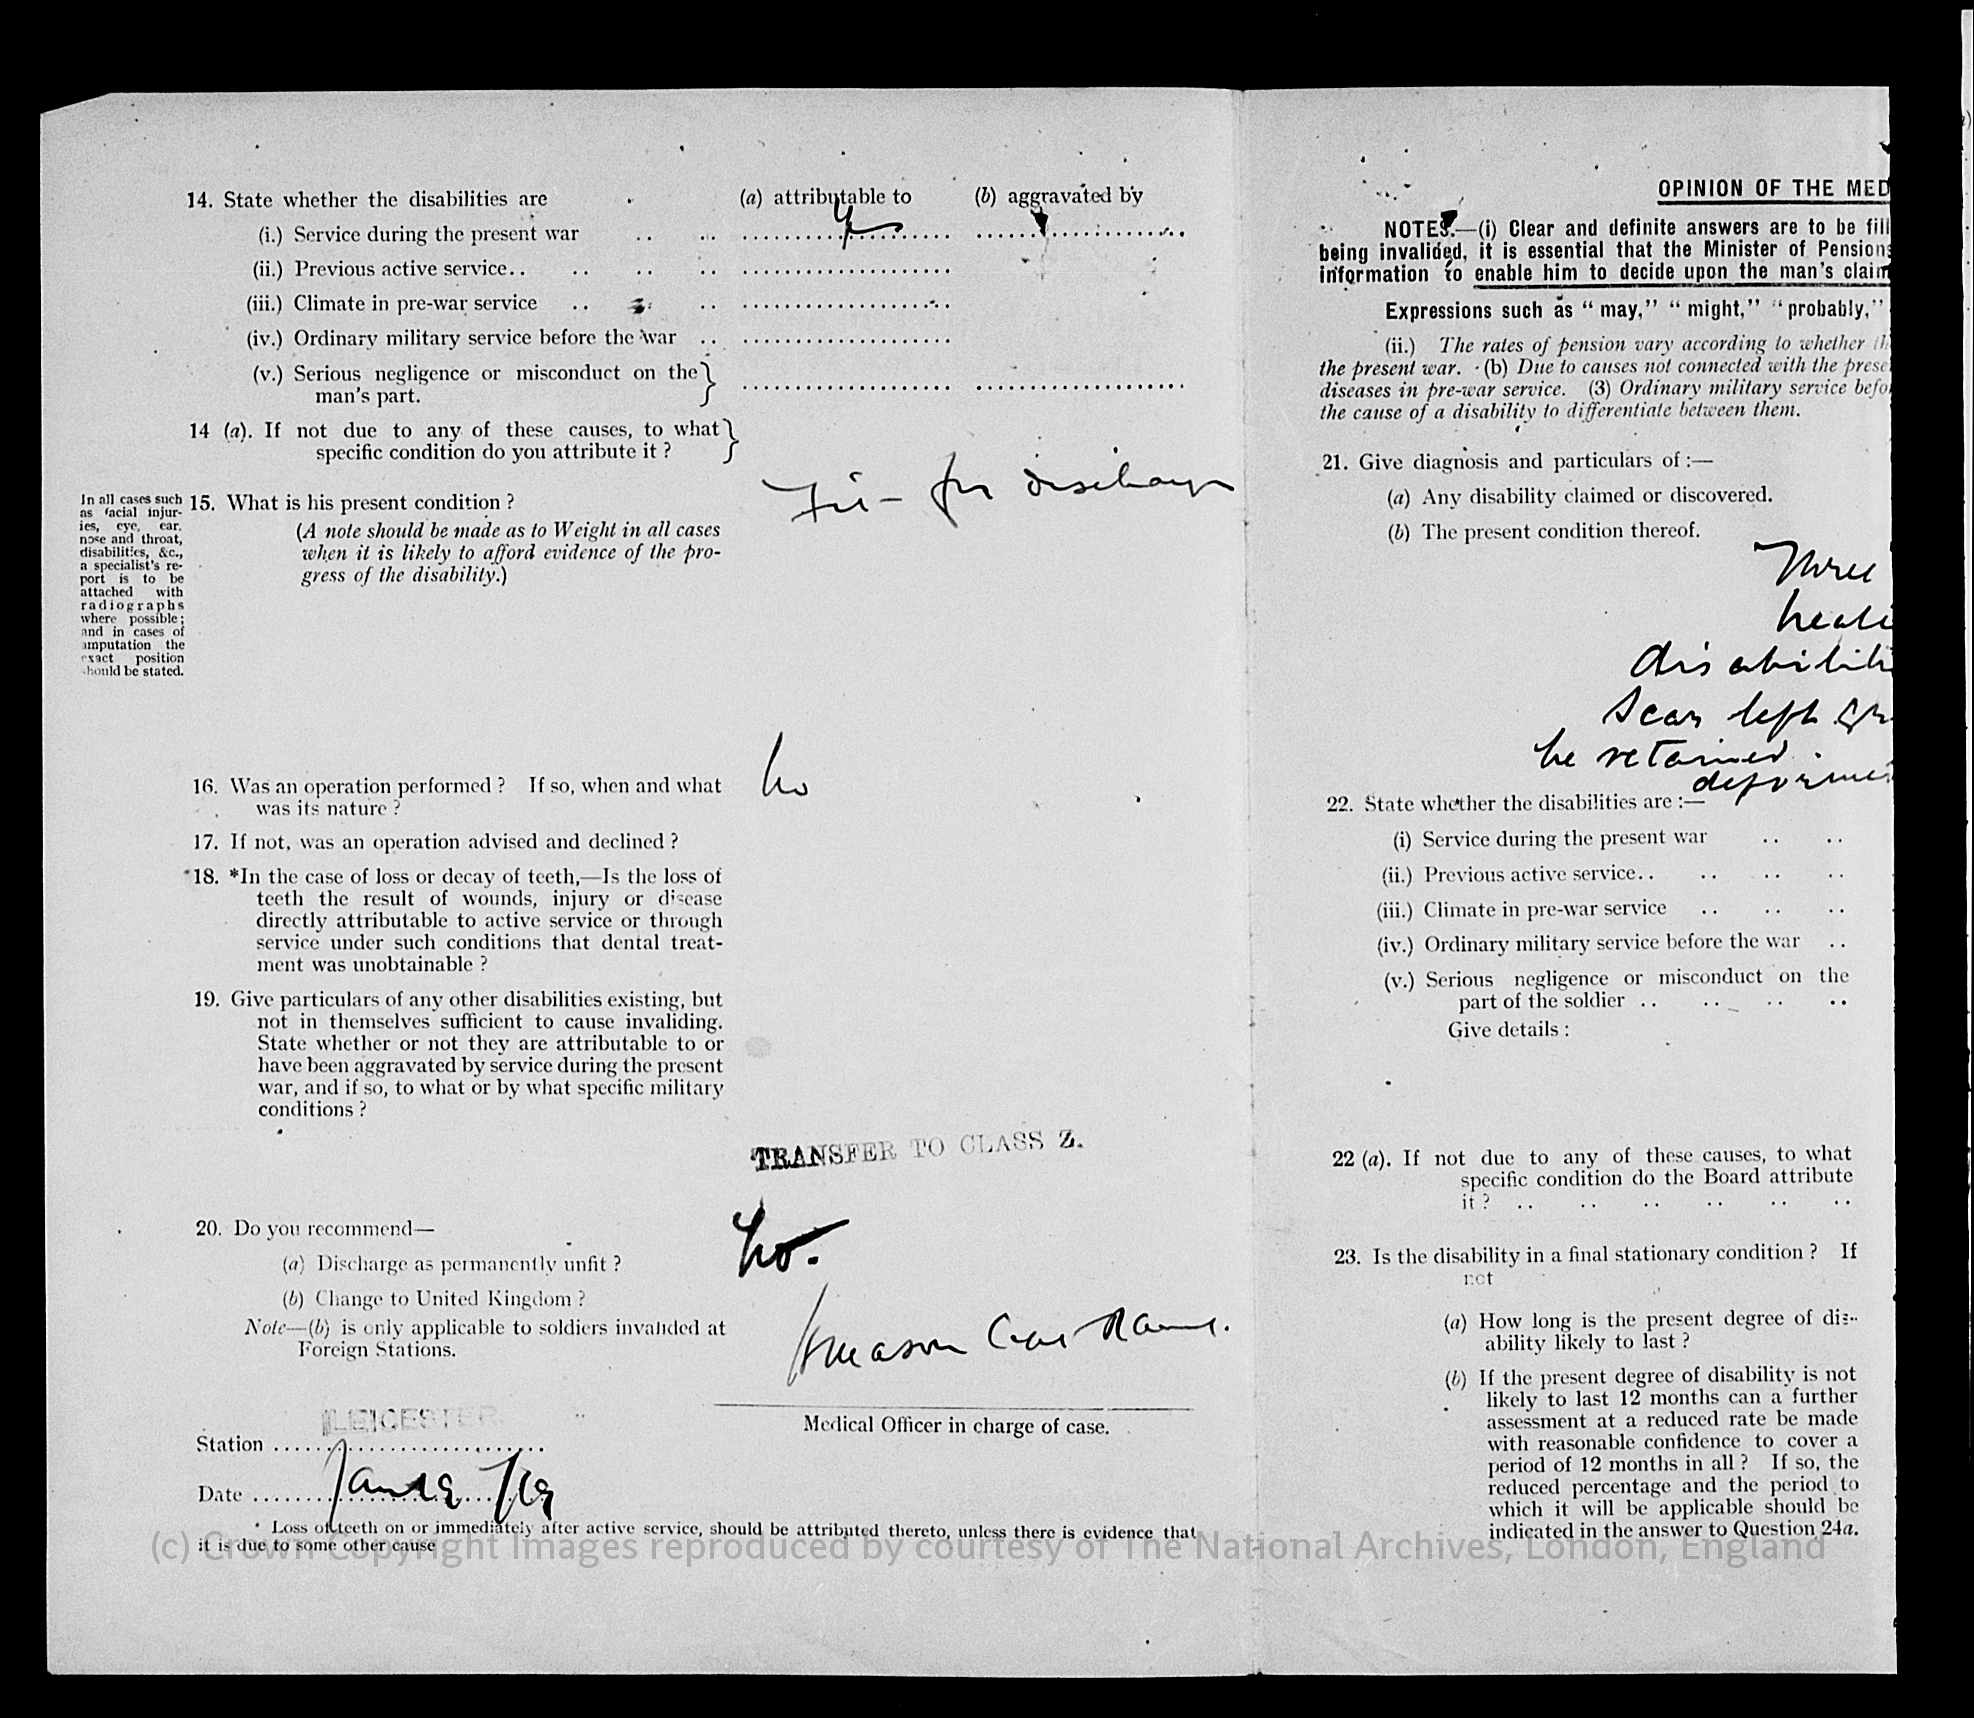 14. State whether the disabilities are (a) attributable to (b) aggravated by
(i.) Service during the present war .. .. yes
(ii.) Previous active service.. .. .. ..
(iii.) Climate in pre-war service .. .. ..
(iv.) Ordinary military service before the war ..
(v.) Serious negligence or misconduct on the
man's part.
14 (a). If not due to any of these causes, to what
specific condition do you attribute it ?
In all cases such
as facial injur-
ies, eye, ear,
nose and throat,
disabilities, &c.,
a specialist's re-
port is to be
attached with
radiographs
where possible;
and in cases of
amputation the
exact position
should be stated.
15. What is his present condition ? Fit - for discharge
(A note should be made as to Weight in all cases
when it is likely to afford evidence of the pro-
gress of the disability.)
16. Was an operation performed ? If so, when and what No
was its nature ?
17. If not, was an operation advised and declined ?
18. *In the case of loss or decay of teeth,—Is the loss of
teeth the result of wounds, injury or disease
directly attributable to active service or through
service under such conditions that dental treat-
ment was unobtainable ?
19. Give particulars of any other disabilities existing, but
not in themselves sufficient to cause invaliding.
State whether or not they are attributable to or
have been aggravated by service during the present
war, and if so, to what or by what specific military
conditions ?
TRANSFER TO CLASS Z.
20. Do you recommend—
(a) Discharge as permanently unfit ? No.
(b) Change to United Kingdom ?
Note—(b) is only applicable to soldiers invalided at
Foreign Stations.
Mason Capt RAMC.
Medical Officer in charge of case.
LEICESTER
Station
Date Jan
* Loss of teeth on or immediately after active service, should be attributed thereto, unless there is evidence that
it is due to some other cause
OPINION OF THE MED
NOTES.—(i) Clear and definite answers are to be fill
being invalided, it is essential that the Minister of Pensions
information to enable him to decide upon the man's claim
Expressions such as "may," "might," "probably,"
(ii.) The rates of pension vary according to whether th
the present war. (b) Due to causes not connected with the prese
diseases in pre-war service. (3) Ordinary military service befo
the cause of a disability to differentiate between them.
21. Give diagnosis and particulars of :—
(a) Any disability claimed or discovered.
(b) The present condition thereof.
Three
heal
disabilit
Scar left
be retained.
22. State whether the disabilities are :—
(i) Service during the present war .. ..
(ii.) Previous active service.. .. .. ..
(iii.) Climate in pre-war service .. .. ..
(iv.) Ordinary military service before the war ..
(v.) Serious negligence or misconduct on the
part of the soldier .. .. .. ..
Give details :
22 (a). If not due to any of these causes, to what
specific condition do the Board attribute
it ? .. .. .. .. .. ..
23. Is the disability in a final stationary condition ? If
not
(a) How long is the present degree of dis-
ability likely to last ?
(b) If the present degree of disability is not
likely to last 12 months can a further
assessment at a reduced rate be made
with reasonable confidence to cover a
period of 12 months in all ? If so, the
reduced percentage and the period to
which it will be applicable should be
indicated in the answer to Question 24a.
(c) Crown Copyright Images reproduced by courtesy of The National Archives, London, England